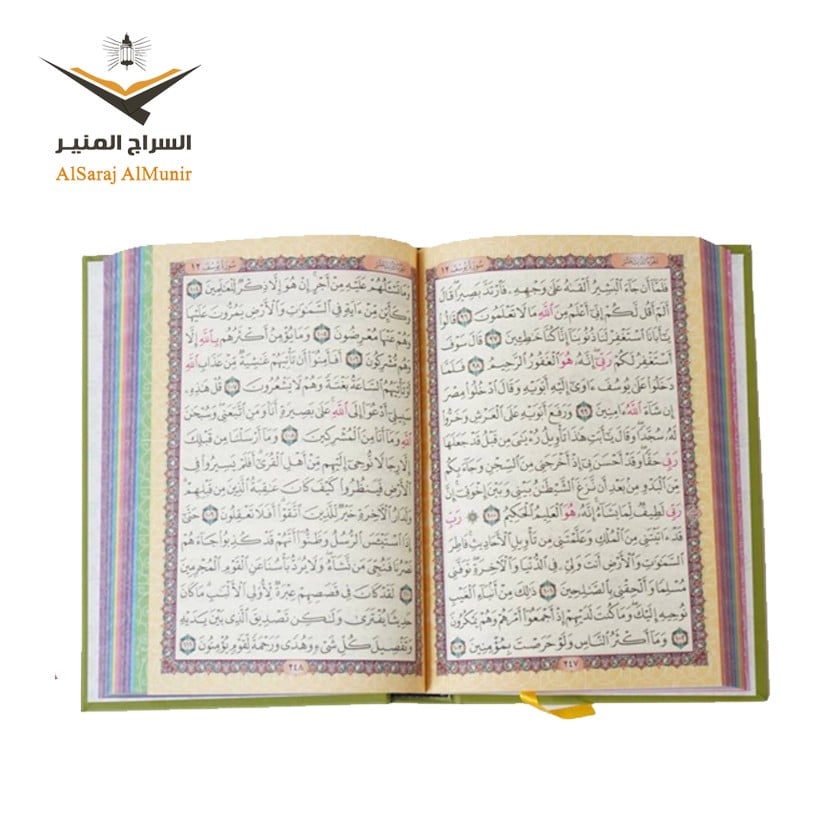 السراج المنير
AlSaraj AlMunir
الجزء الثالث عشر سورة يوسف ١٢
فَلَمَّآ أَن جَآءَ ٱلۡبَشِيرُ أَلۡقَىٰهُ عَلَىٰ وَجۡهِهِۦ فَٱرۡتَدَّ بَصِيرٗاۖ قَالَ
أَلَمۡ أَقُل لَّكُمۡ إِنِّيٓ أَعۡلَمُ مِنَ ٱللَّهِ مَا لَا تَعۡلَمُونَ ٩٦ قَالُواْ
يَٰٓأَبَانَا ٱسۡتَغۡفِرۡ لَنَا ذُنُوبَنَآ إِنَّا كُنَّا خَٰطِـِٔينَ ٩٧ قَالَ سَوۡفَ
أَسۡتَغۡفِرُ لَكُمۡ رَبِّيٓۖ إِنَّهُۥ هُوَ ٱلۡغَفُورُ ٱلرَّحِيمُ ٩٨ فَلَمَّا
دَخَلُواْ عَلَىٰ يُوسُفَ ءَاوَىٰٓ إِلَيۡهِ أَبَوَيۡهِ وَقَالَ ٱدۡخُلُواْ مِصۡرَ
إِن شَآءَ ٱللَّهُ ءَامِنِينَ ٩٩ وَرَفَعَ أَبَوَيۡهِ عَلَى ٱلۡعَرۡشِ وَخَرُّواْ
لَهُۥ سُجَّدٗاۖ وَقَالَ يَٰٓأَبَتِ هَٰذَا تَأۡوِيلُ رُءۡيَٰيَ مِن قَبۡلُ قَدۡ جَعَلَهَا
رَبِّي حَقّٗاۖ وَقَدۡ أَحۡسَنَ بِيٓ إِذۡ أَخۡرَجَنِي مِنَ ٱلسِّجۡنِ وَجَآءَ بِكُم
مِّنَ ٱلۡبَدۡوِ مِنۢ بَعۡدِ أَن نَّزَغَ ٱلشَّيۡطَٰنُ بَيۡنِي وَبَيۡنَ إِخۡوَتِيٓۚ إِنَّ
رَبِّي لَطِيفٞ لِّمَا يَشَآءُۚ إِنَّهُۥ هُوَ ٱلۡعَلِيمُ ٱلۡحَكِيمُ ١٠٠ ۞ رَبِّ
قَدۡ ءَاتَيۡتَنِي مِنَ ٱلۡمُلۡكِ وَعَلَّمۡتَنِي مِن تَأۡوِيلِ ٱلۡأَحَادِيثِۚ فَاطِرَ
ٱلسَّمَٰوَٰتِ وَٱلۡأَرۡضِ أَنتَ وَلِيِّۦ فِي ٱلدُّنۡيَا وَٱلۡأٓخِرَةِۖ تَوَفَّنِي
مُسۡلِمٗا وَأَلۡحِقۡنِي بِٱلصَّٰلِحِينَ ١٠١ ذَٰلِكَ مِنۡ أَنۢبَآءِ ٱلۡغَيۡبِ
نُوحِيهِ إِلَيۡكَۖ وَمَا كُنتَ لَدَيۡهِمۡ إِذۡ أَجۡمَعُوٓاْ أَمۡرَهُمۡ وَهُمۡ يَمۡكُرُونَ
١٠٢ وَمَآ أَكۡثَرُ ٱلنَّاسِ وَلَوۡ حَرَصۡتَ بِمُؤۡمِنِينَ ١٠٣
٢٤٧
الجزء الثالث عشر سورة يوسف ١٢
وَمَا تَسۡـَٔلُهُمۡ عَلَيۡهِ مِنۡ أَجۡرٍۚ إِنۡ هُوَ إِلَّا ذِكۡرٞ لِّلۡعَٰلَمِينَ ١٠٤
وَكَأَيِّن مِّنۡ ءَايَةٖ فِي ٱلسَّمَٰوَٰتِ وَٱلۡأَرۡضِ يَمُرُّونَ عَلَيۡهَا
وَهُمۡ عَنۡهَا مُعۡرِضُونَ ١٠٥ وَمَا يُؤۡمِنُ أَكۡثَرُهُم بِٱللَّهِ إِلَّا
وَهُم مُّشۡرِكُونَ ١٠٦ أَفَأَمِنُوٓاْ أَن تَأۡتِيَهُمۡ غَٰشِيَةٞ مِّنۡ عَذَابِ ٱللَّهِ
أَوۡ تَأۡتِيَهُمُ ٱلسَّاعَةُ بَغۡتَةٗ وَهُمۡ لَا يَشۡعُرُونَ ١٠٧ قُلۡ هَٰذِهِۦ
سَبِيلِيٓ أَدۡعُوٓاْ إِلَى ٱللَّهِۚ عَلَىٰ بَصِيرَةٍ أَنَا۠ وَمَنِ ٱتَّبَعَنِيۖ وَسُبۡحَٰنَ
ٱللَّهِ وَمَآ أَنَا۠ مِنَ ٱلۡمُشۡرِكِينَ ١٠٨ وَمَآ أَرۡسَلۡنَا مِن قَبۡلِكَ
إِلَّا رِجَالٗا نُّوحِيٓ إِلَيۡهِم مِّنۡ أَهۡلِ ٱلۡقُرَىٰٓۗ أَفَلَمۡ يَسِيرُواْ فِي
ٱلۡأَرۡضِ فَيَنظُرُواْ كَيۡفَ كَانَ عَٰقِبَةُ ٱلَّذِينَ مِن قَبۡلِهِمۡۗ
وَلَدَارُ ٱلۡأٓخِرَةِ خَيۡرٞ لِّلَّذِينَ ٱتَّقَوۡاْۚ أَفَلَا تَعۡقِلُونَ ١٠٩ حَتَّىٰٓ
إِذَا ٱسۡتَيۡـَٔسَ ٱلرُّسُلُ وَظَنُّوٓاْ أَنَّهُمۡ قَدۡ كُذِبُواْ جَآءَهُمۡ
نَصۡرُنَا فَنُجِّيَ مَن نَّشَآءُۖ وَلَا يُرَدُّ بَأۡسُنَا عَنِ ٱلۡقَوۡمِ ٱلۡمُجۡرِمِينَ
١١٠ لَقَدۡ كَانَ فِي قَصَصِهِمۡ عِبۡرَةٞ لِّأُوْلِي ٱلۡأَلۡبَٰبِۗ مَا كَانَ
حَدِيثٗا يُفۡتَرَىٰ وَلَٰكِن تَصۡدِيقَ ٱلَّذِي بَيۡنَ يَدَيۡهِ
وَتَفۡصِيلَ كُلِّ شَيۡءٖ وَهُدٗى وَرَحۡمَةٗ لِّقَوۡمٖ يُؤۡمِنُونَ ١١١
٢٤٨